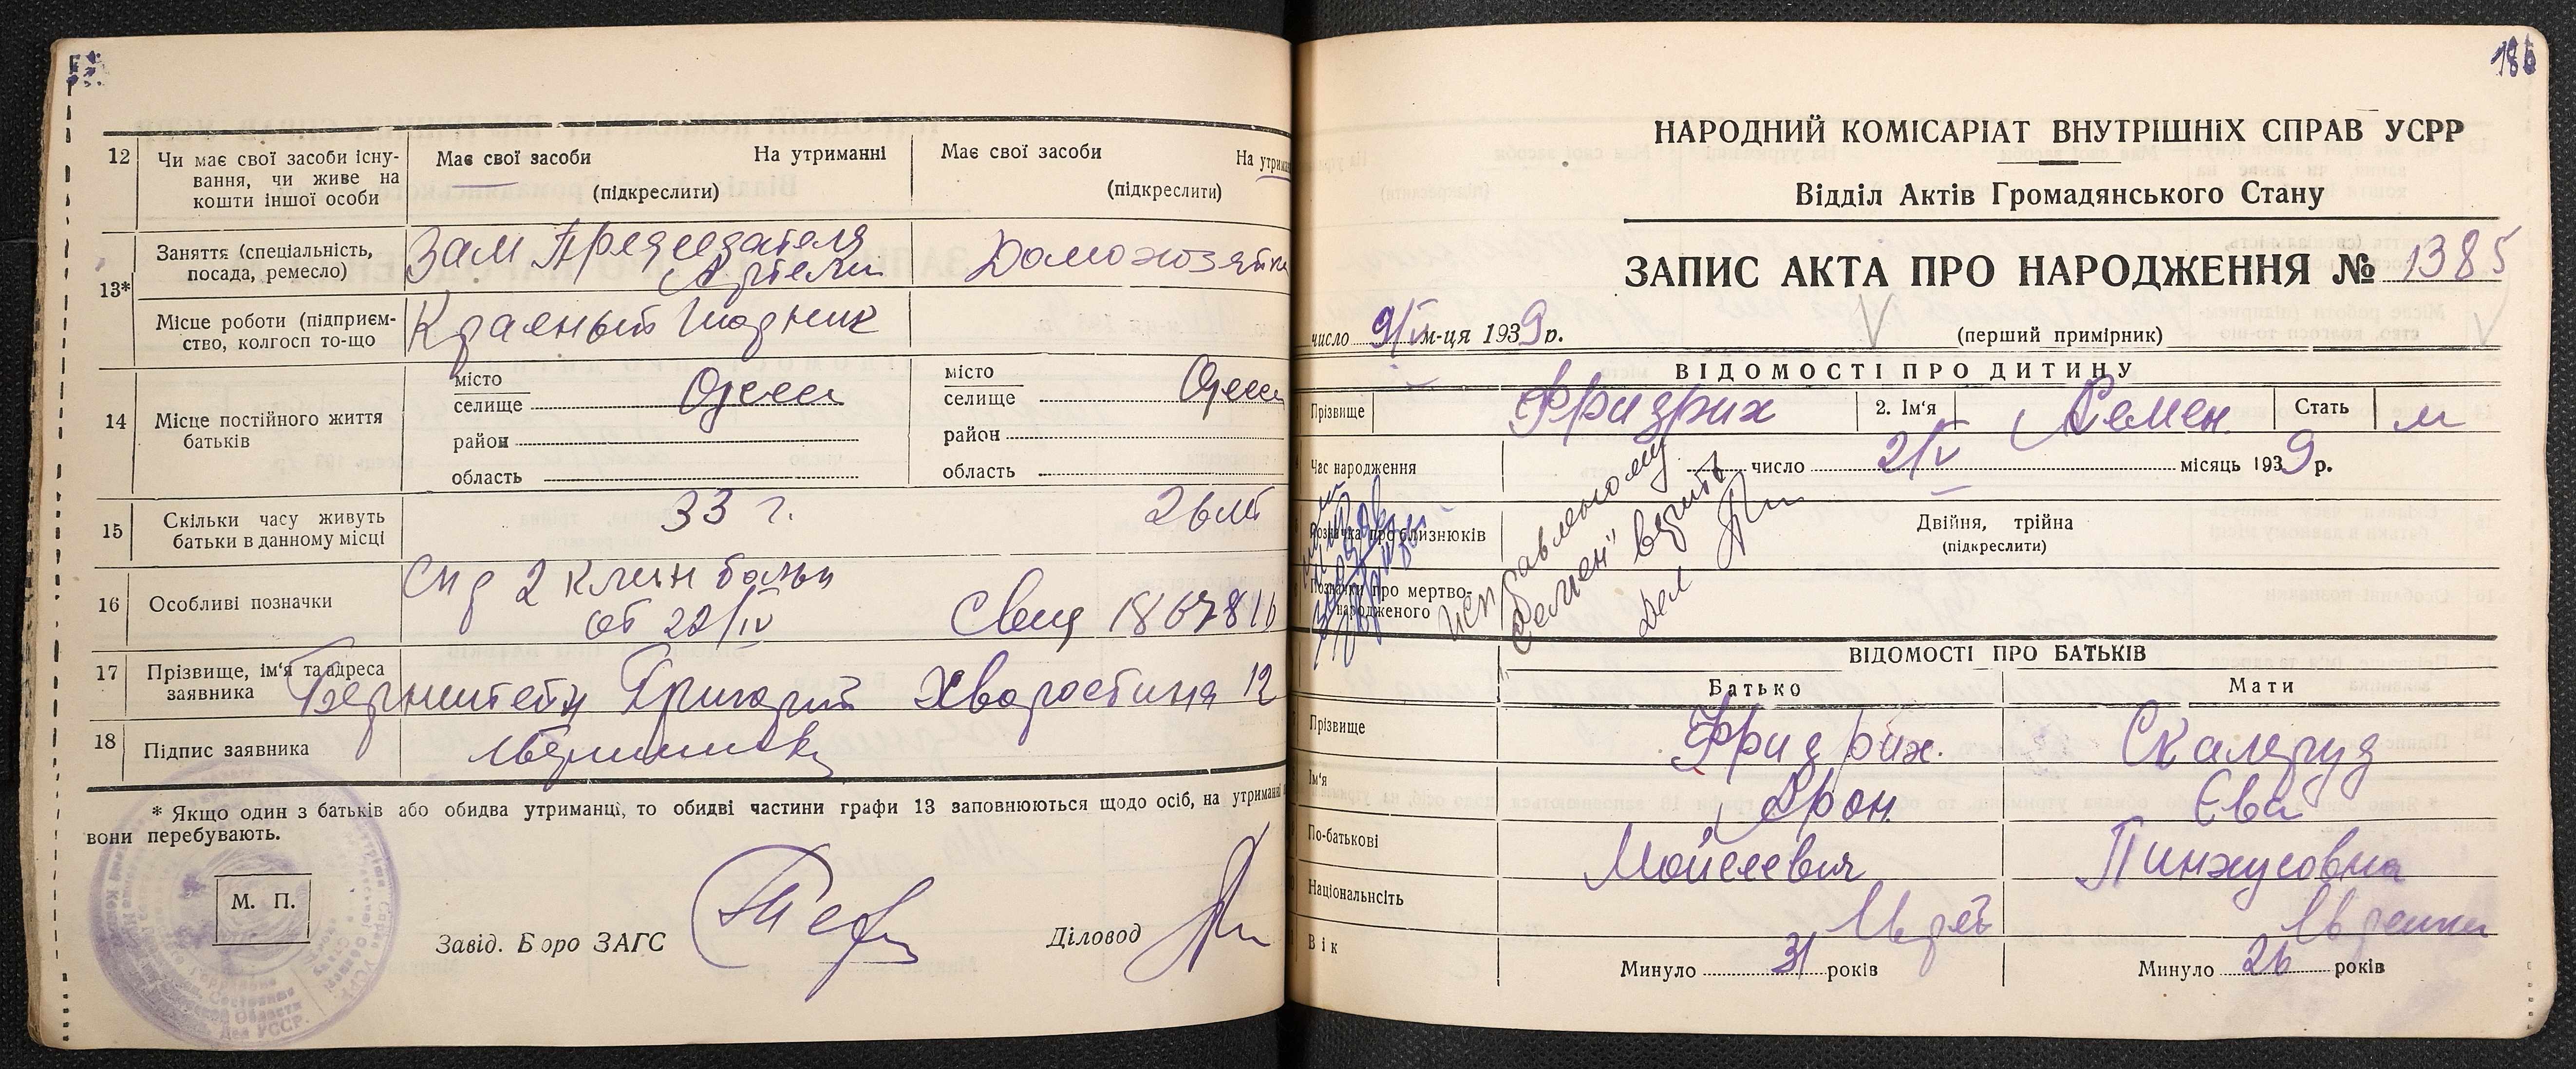 12
Чи має свої засоби існу-
вання, чи живе на
кошти іншої особи
Має свої засоби На утриманні
(підкреслити)
Має свої засоби На утриман
(підкреслити)
13*
Заняття (спеціальність,
посада, ремесло)
Зам Председателя
Артели
Домохозяйка
Місце роботи (підприєм-
ство, колгосп то-що
Красный
14
Місце постійного життя
батьків
місто
селище Одесса
район
область
місто
селище Одесса
район
область
15
Скільки часу живуть
батьки в данному місці
33 г.
26 лет
16
Особливі позначки
Спр 2 клин больн
от 22/IV
Свид
17
Прізвище, ім'я та адреса
заявника
Бернштейн Григорий Хворостина 12
18
Підпис заявника
* Якщо один з батьків або обидва утриманці, то обидві частини графи 13 заповнюються щодо осіб, на утриманні
вони перебувають.
М. П.
Завід. Бюро ЗАГС
Діловод
НАРОДНИЙ КОМІСАРІАТ ВНУТРІШНІХ СПРАВ УСРР
Відділ Актів Громадянського Стану
ЗАПИС АКТА ПРО НАРОДЖЕННЯ № 1385
число 9/V м-ця 1939 р.
(перший примірник)
ВІДОМОСТІ ПРО ДИТИНУ
Прізвище
Фридрих
2. Ім'я
Семен
Стать
м
Час народження
число 2/V місяць 1939 р.
Позначка про близнюків
Двійня, трійна
(підкреслити)
Позначки про мертво-
народженого
Исправленному
"Семен" верить
Дел
ВІДОМОСТІ ПРО БАТЬКІВ
Батько
Мати
Прізвище
Фридрих.
Скалеруд
Ім'я
Арон.
Ева
По-батькові
Мойсеевич
Пинхусовна
Національність
Еврей
Еврейка
Вік
Минуло 31 років
Минуло 26 років